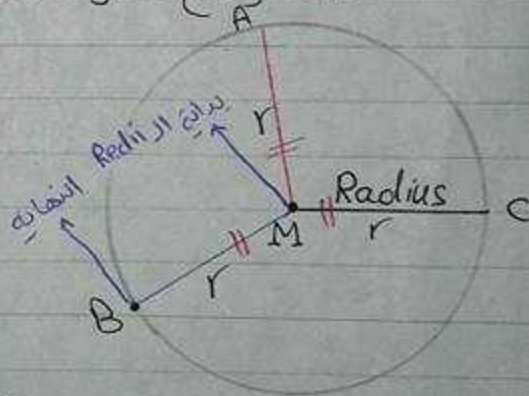 A
r
بداية ال Redii
النهاية
Radius
C
r
M
r
B